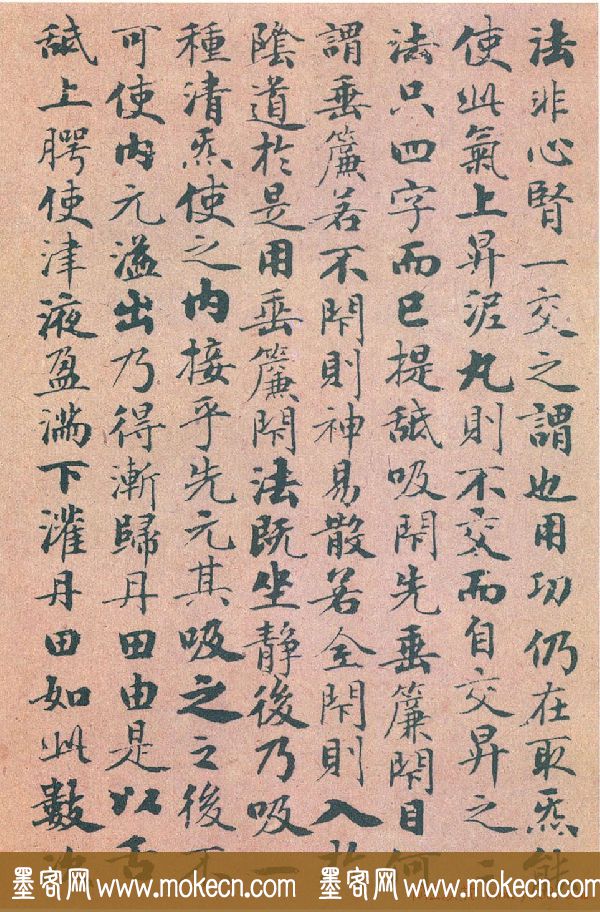 法非心腎一交之謂也用功仍在取炁能
使此氣上昇泥丸則不交而自交昇之
法只四字而已提舐吸閇先垂簾閇目何
謂垂簾若不閇則神易散若全閇則入
陰道於是用垂簾閇法既坐靜後乃吸一
種清炁使之内接乎先元其吸之之後不
可使内元溢出乃得漸歸丹田由是以舌
舐上腭使津液盈满下灌丹田如此數
墨客网 www.mokecn.com 墨客网 www.mokecn.com